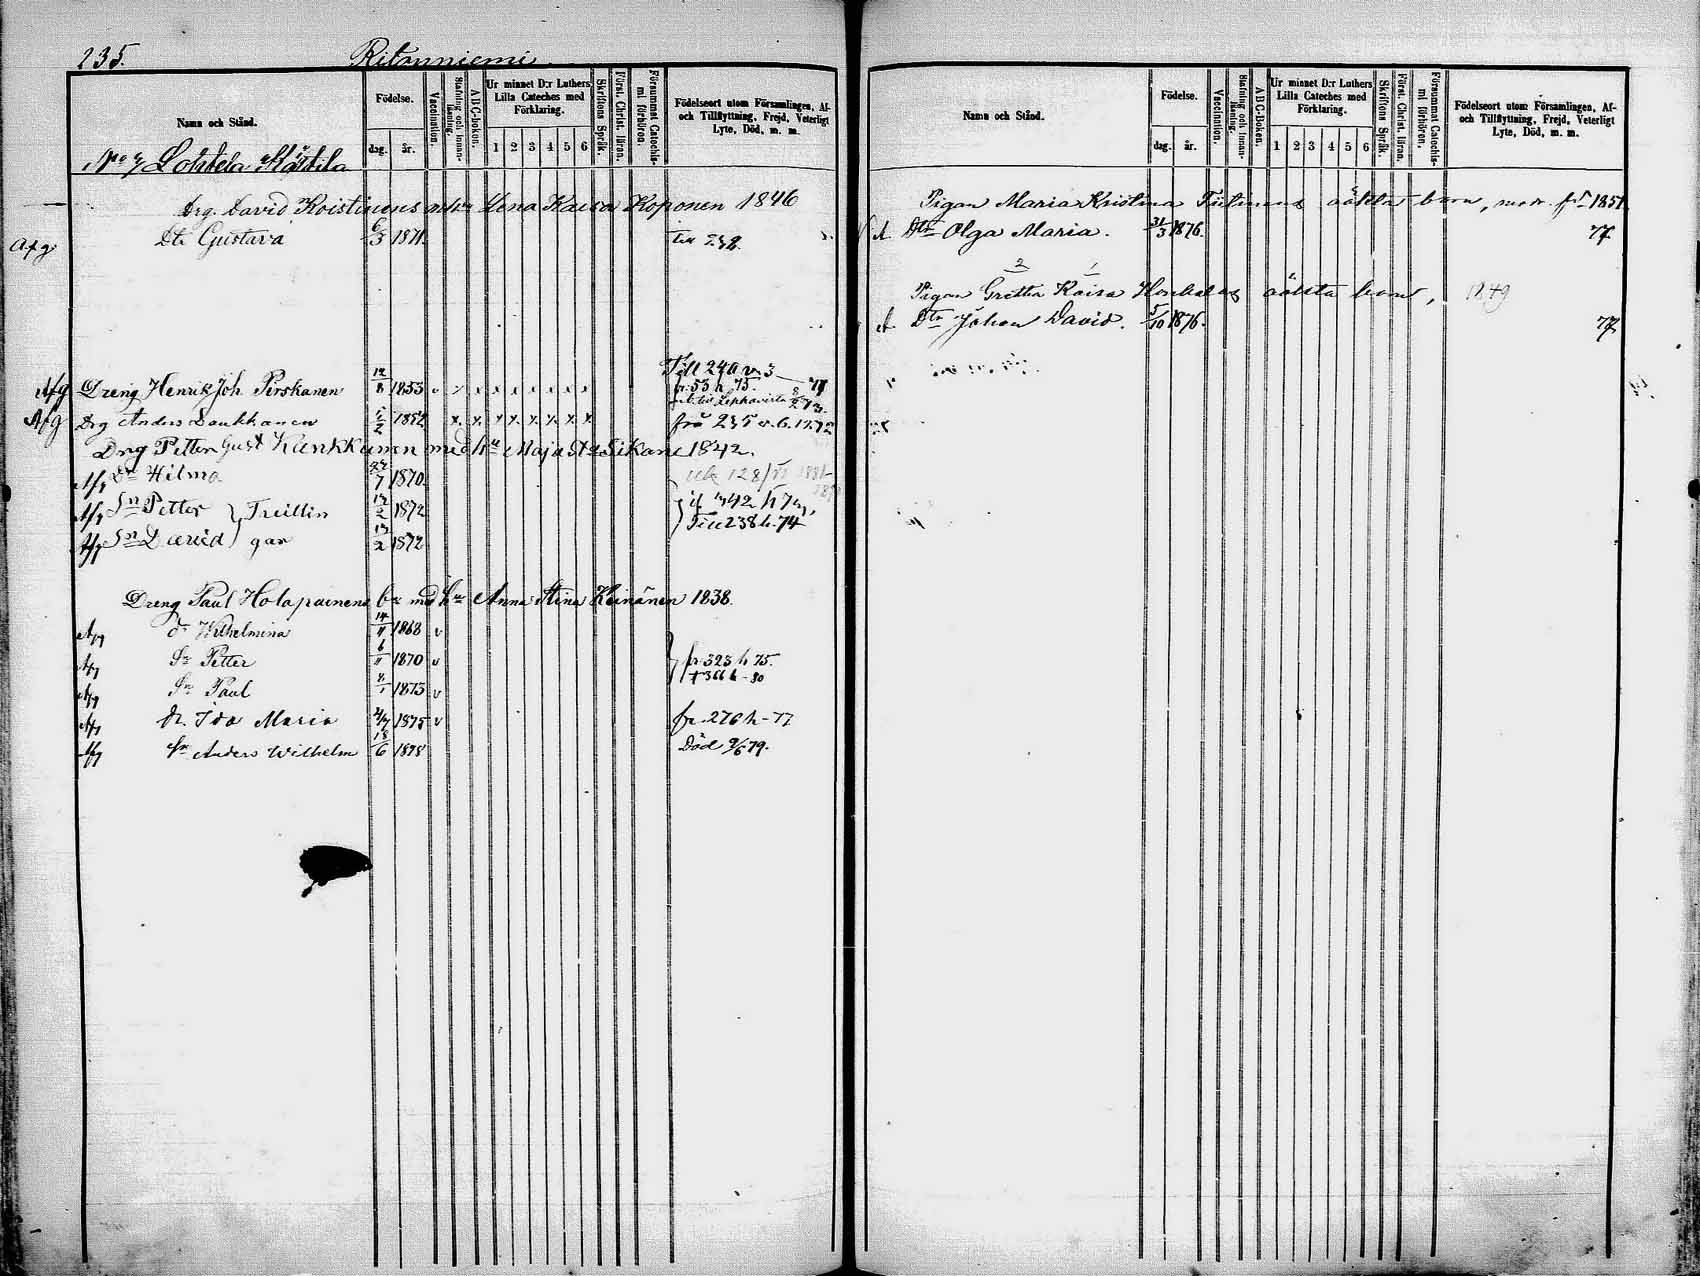 235. Ritoniemi
Namn och Stånd.
Födelse.
dag. år.
Vaccination.
Stafning och Innanläsning.
A B C-Boken.
Ur minnet D:r Luthers Lilla Cateches med Förklaring.
1 2 3 4 5 6
Skriftens Språk.
Först. Christ. läran.
Försummat Catechismi förhören.
Födelseort utom Församlingen, Af- och Tillflyttning, Frejd, Veterligt Lyte, Död, m. m.
No 7 Mattila
Drg. David Koistinens m h:u Lena Kaisa Koponen 1846
Afg Dtr Gustava 6/3 1871. till 238.
Till 240 v. 3
Afg Dreng Henrik Joh Pirskanen 12/8 1853 v x x x x x x x x fr. 53 h 75. 77
Afg Drg Anders Laukkanen 1/2 1852 x x x x x x x x frå 235 v. 6. 1872
Drg Petter Gust Kankkunen med h:u Maja Sta Sikane 1842.
Afg Dr Hilma 7 1870. 128/VI 1881
Afg Sn Petter } Tvillin 12/2 1872 342 h 73,
Afg Sn David } gar 12/2 1872 Till 238 h. 74
Dreng Paul Holapainens br med h:u Anna Stina Keinänen 1838.
Afg dr Wilhelmina 14/11 1868 v
Afg Sn Petter 6/11 1870 v fr 323 h 75.
Afg Sn Paul 8/1 1873 v t 366 h - 80
Afg dr. Ida Maria 4/7 1875 v fr. 276 h - 77
Afg Sn Anders Wilhelm 18/6 1878 Död 9/6 79.
Namn och Stånd.
Födelse.
dag. år.
Vaccination.
Stafning och Innanläsning.
A B C-Boken.
Ur minnet D:r Luthers Lilla Cateches med Förklaring.
1 2 3 4 5 6
Skriftens Språk.
Först. Christ. läran.
Försummat Catechismi förhören.
Födelseort utom Församlingen, Af- och Tillflyttning, Frejd, Veterligt Lyte, Död, m. m.
Pigan Maria Kristina Tiitinens oäkta barn, modr. fd 1851
A Dtr Olga Maria. 31/3 1876. 77
2 1
Pigan Gretha Kaisa oäkta barn, 1849
A Johan David. 5/10 1876. 77